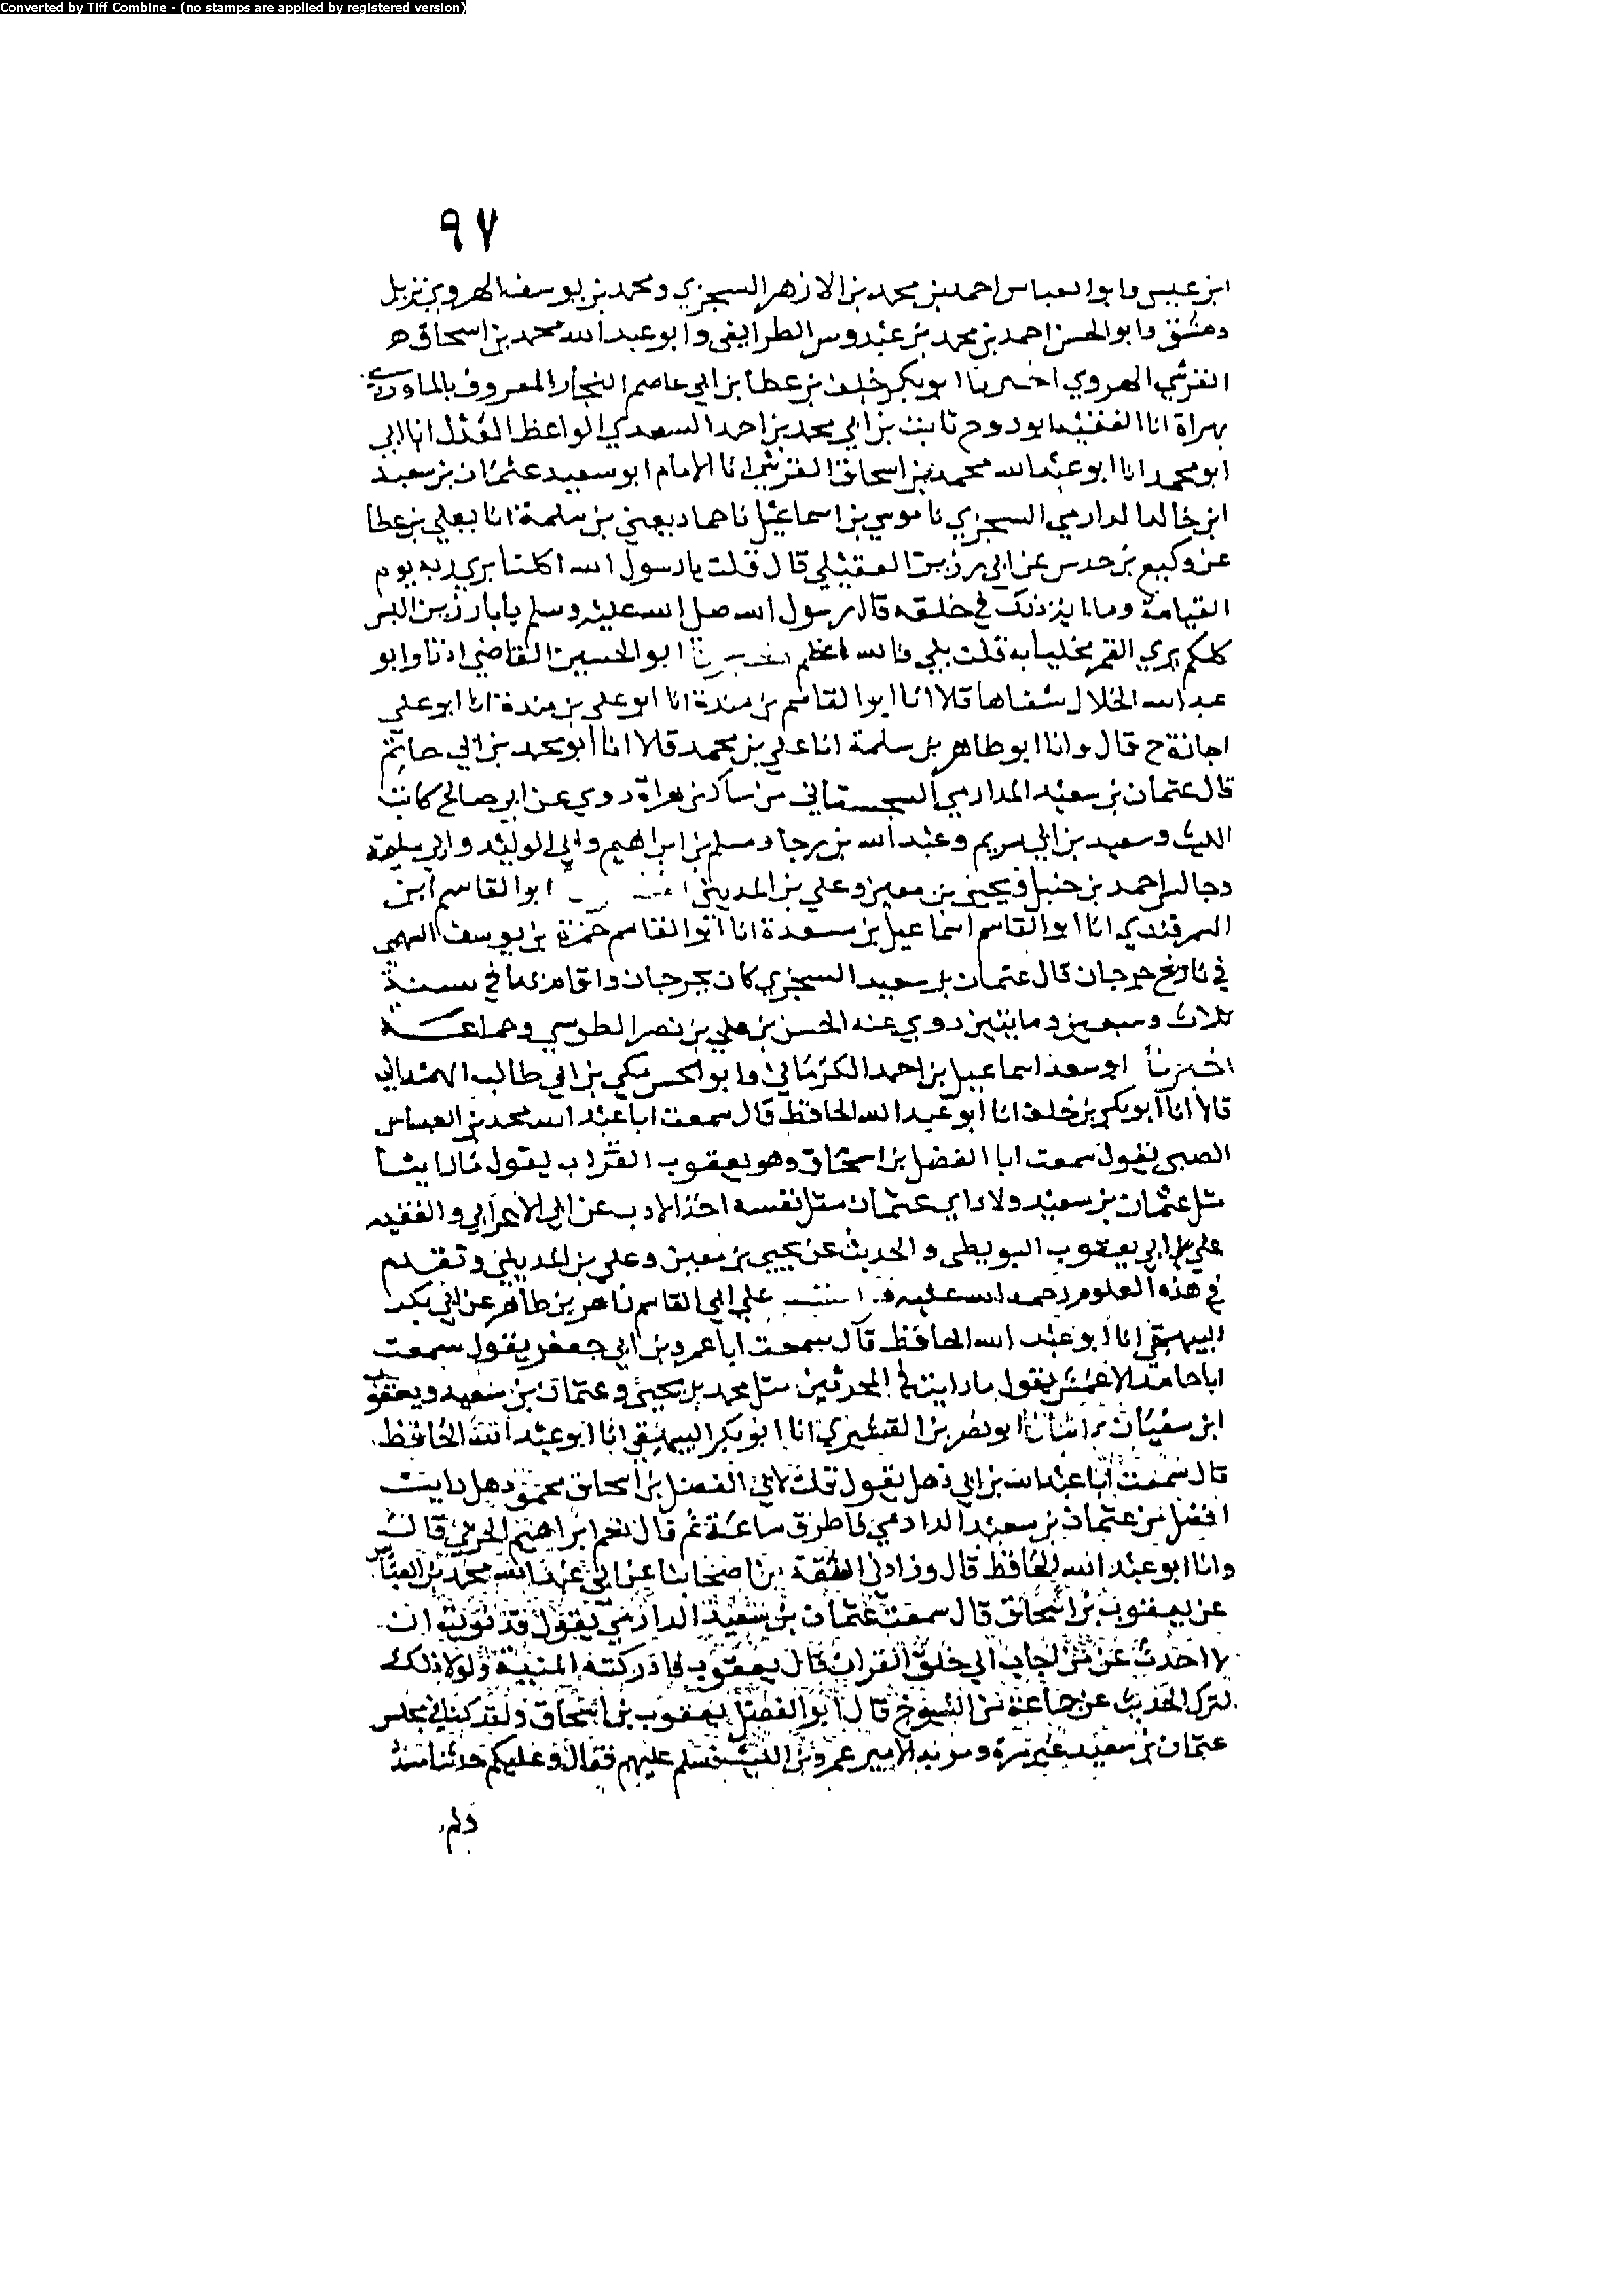 Converted by Tiff Combine - (no stamps are applied by registered version)
٩٧
ابن عيسى وابوالعباس احمد بن محمد بن الازهر السجزي ومحمد بن يوسف الهروي نزيل
دمشق وابوالحسن احمد بن محمد بن عبدوس الطرايفي وابوعبد الله محمد بن اسحاق
القرشي الهروي اخبرنا ابوبكر خلف بن عطا بن ابي عاصم النجار المعروف بالماوردي
بهراة انا الفقيه ابو روح ثابت بن ابي محمد بن احمد السعدي الواعظ العدل انا ابي
ابو محمد انا ابو عبد الله محمد بن اسحاق القرشي انا الامام ابو سعيد عثمان بن سعيد
ابن خالد الدارمي السجزي نا موسى بن اسماعيل نا حماد يعني بن سلمة انا يعلي بن عطا
عن وكيع بن حدس عن ابي رزين العقيلي قال قلت يا رسول الله اكلنا يري ربه يوم
القيامة وما اية ذلك في خلقه قال رسول الله صلى الله عليه وسلم يابا رزين اليس
كلكم يري القمر مخليا به قلت بلي قال الله اعظم اخبرنا ابو الحسين القاضي اذنا وابو
عبد الله الخلال شفاها قالا انا ابو القاسم بن مندة انا ابو علي
اجازة ح قال وانا ابو طاهر بن سلمة انا علي بن محمد قالا انا ابو محمد بن ابي حاتم
قال عثمان بن سعيد الدارمي السجستاني من ساكن هراة روي عن ابي صالح كاتب
الليث وسعيد بن ابي مريم وعبد الله بن رجا ومسلم بن ابراهيم وابي الوليد وابي سلمة
وجالس احمد بن حنبل ويحيى بن معين وعلي بن المديني ابو القاسم ابن
السمرقندي انا ابو القاسم اسماعيل بن مسعدة انا ابو القاسم حمزة بن يوسف السهمي
في تاريخ جرجان قال عثمان بن سعيد السجزي كان بجرجان واقام بها في سنة
ثلاث وسبعين ومايتين روي عنه الحسن بن علي بن نصر الطوسي وجماعة
اخبرنا ابو سعد اسماعيل بن احمد الكرماني وابو الحسن مكي بن ابي طالب الهمداني
قالا انا ابو بكر بن خلف انا ابو عبد الله الحافظ قال سمعت ابا عبد الله محمد بن العباس
الضبي يقول سمعت ابا الفضل بن اسحاق وهو يعقوب القراب يقول ما راينا
مثل عثمان بن سعيد ولا راي عثمان مثل نفسه اخذ الادب عن ابن الاعرابي والفقه
علي ابي يعقوب البويطي والحديث عن يحيى بن معين وعلي بن المديني وتقدم
في هذه العلوم رحمة الله عليه علي ابي القاسم زاهر بن طاهر عن ابي بكر
البيهقي انا ابو عبد الله الحافظ قال سمعت ابا عمرو بن ابي جعفر يقول سمعت
ابا حامد الاعمش يقول ما رايت في المحدثين مثل محمد بن يحيى وعثمان بن سعيد ويعقوب
ابن سفيان انبانا ابو نصر بن القشيري انا ابو بكر البيهقي انا ابو عبد الله الحافظ
قال سمعت ابا عبد الله بن ابي ذهل يقول قلت لابي الفضل بن اسحاق محمود هل رايت
افضل من عثمان بن سعيد الدارمي فاطرق ساعة ثم قال نعم ابراهيم الحربي قال
وانا ابو عبد الله الحافظ قال وزادني الثقة من اصحابنا عن ابي عبد الله محمد بن العباس
عن يعقوب بن اسحاق قال سمعت عثمان بن سعيد الدارمي يقول قد نويت ان
لا احدث عن من اجاب الي خلق القران قال يعقوب فادركته المنية ولولا ذلك
لترك الحديث عن جماعة من الشيوخ قال ابو الفضل يعقوب بن اسحاق ولقد كنا في مجلس
عثمان بن سعيد غير مرة ومر به الامير عمرو بن الليث فسلم عليهم فقال وعليكم حدثنا مسدد